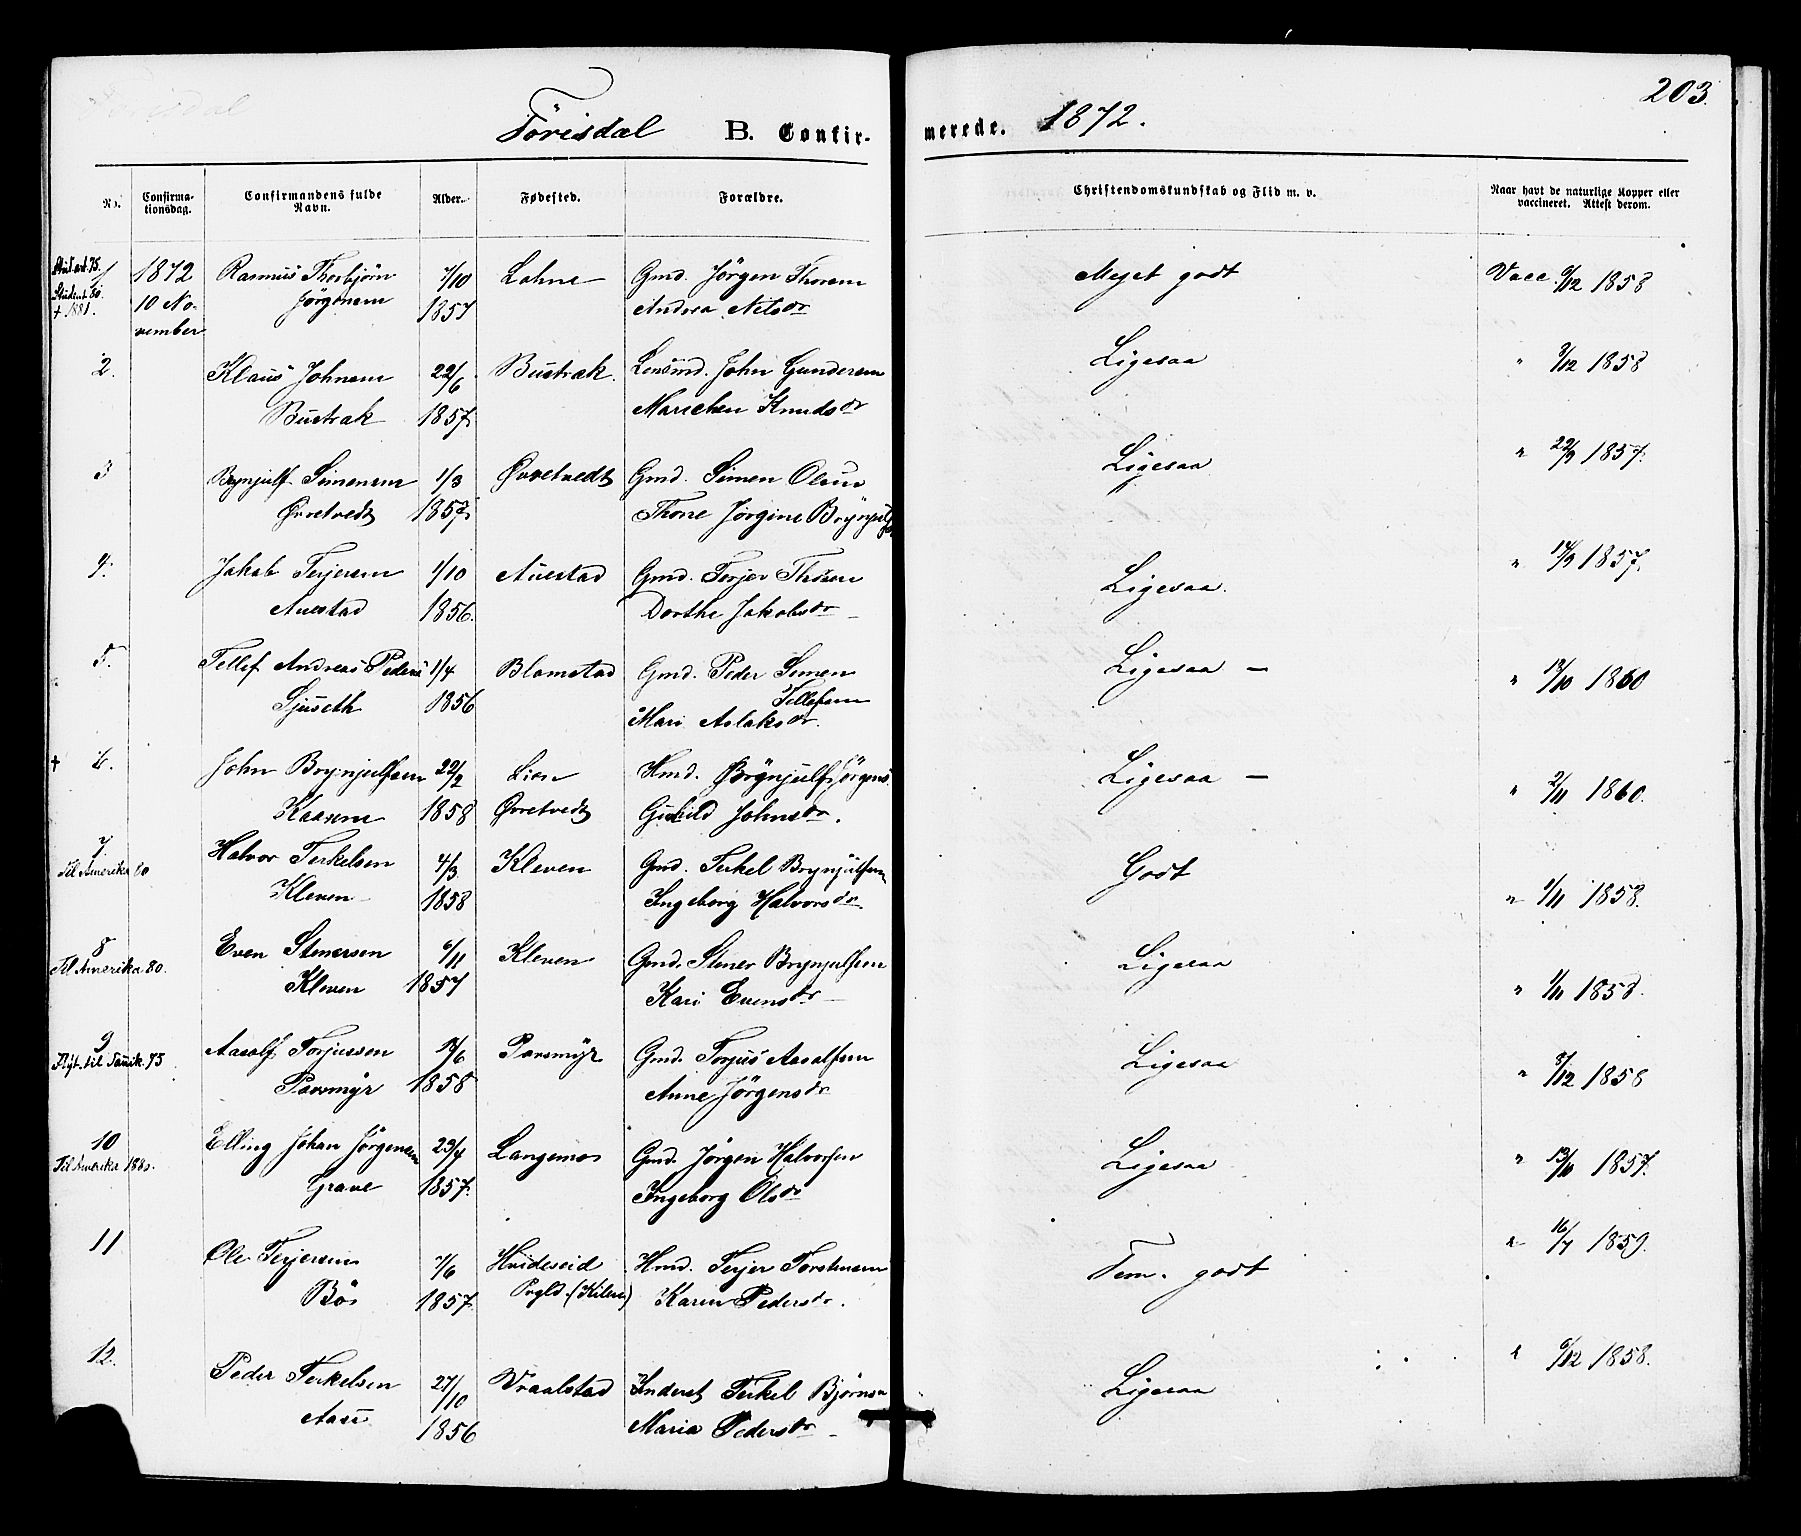 203.
Törisdal B. Confirmerede. 1872.
No. Confirmationsdag. Confirmandens fulde Navn. Alder. Fødested. Forældre. Christendomskundskab og Flid m. v. Naar havt de naturlige Kopper eller vaccineret. Attest derom.
1 1872 Rasmus Thorbjörn 7/10 Lohne Gmd. Jörgen Thorsen Meget godt Vacc. 9/12 1858
Student 80.
† 1881. 10 November Jörgensen 1857 Andrea Nilsdr
2. Klaus Johnsen 22/6 Bustrak. Lensmd. John Gundersen Ligesaa " 9/12 1858
Bustrak 1857. Marichen Knudsdr
3 Brynjulf Simonsen 1/3 Øvretvedt Gmd. Simon Olsen Ligesaa " 22/9 1857.
Øvretvedt 1857. Thone Jörgine Brynjulfsdr
4. Jakob Terjesen 1/10 Auestad Gmd. Terjer Ligesaa. " 14/9 1857.
Auestad 1856. Dorthe Jakobsdr
5. Tellef Andreas Peders 1/4 Blomstad Gmd. Peder Simon Ligesaa " 13/10 1860
Tellefsen
Sjuseth 1856 Mari Aslaksdr.
† 6. John Brynjulfsen 22/2 Lien Hmd. Brynjulf Jörgens. Ligesaa " 2/11 1860.
1858 Øvretvedt Johnsdr.
7 Halvor Terkelsen 4/3 Kleven Gmd. Terkel Brynjulfsen Godt " 1/11 1858.
Til Amerika 80
Kleven 1858 Ingeborg Halvorsdr.
8 Even Stenersen 6/11 Kleven Gmd. Stener Brynjulfsen Ligesaa " 1/11 1858.
Til Amerika 80.
Kleven 1857 Kari Evensdr
9 Aasolf Torjussen Parsmyr Gmd. Torjus Aasolfsen Ligesaa " 3/12 1858
Flÿt. til 75
Parsmyr 1858 Anne Jörgensdr
10 Elling Johan Jörgensen 23/4 Langemos Gmd. Jörgen Halvorsen Ligesaa " 13/11 1857.
Til Amerika 1880.
Grave 1857. Ingeborg Olsdr
11 Ole Terjesen 7/6 Hvideseid Hmd. Terjer Torstensen Tem. godt " 16/7 1859.
Bös 1857. Prgld. (Kilen) Karen Pedersdr.
12. Peder Terkelsen 27/10 Vraalstad Inderst Terkel Björns Ligesaa " 9/12 1858.
1856 Maria Pedersdr